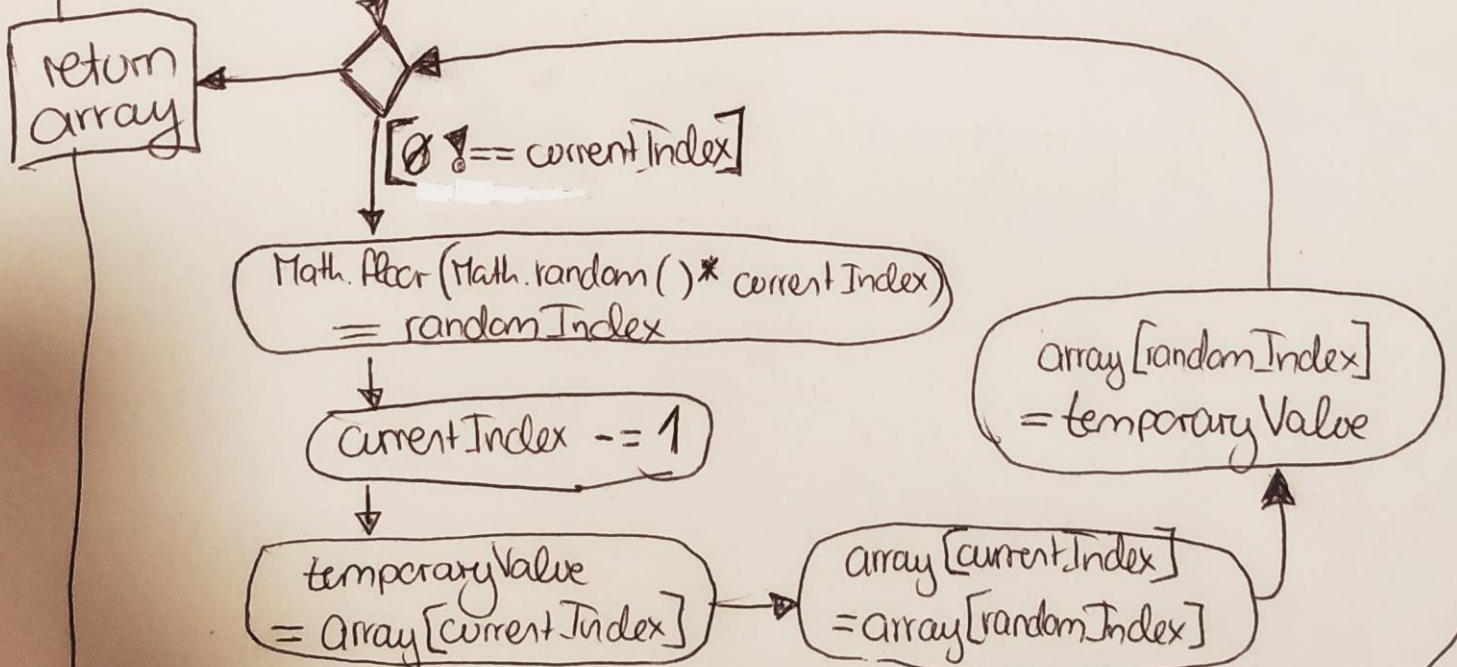 return
array
[0 !== currentIndex]
Math.floor(Math.random()* currentIndex)
= randomIndex
currentIndex -= 1
temporaryValue
= array[currentIndex]
array[currentIndex]
=array[randomIndex]
array[randomIndex]
=temporaryValue